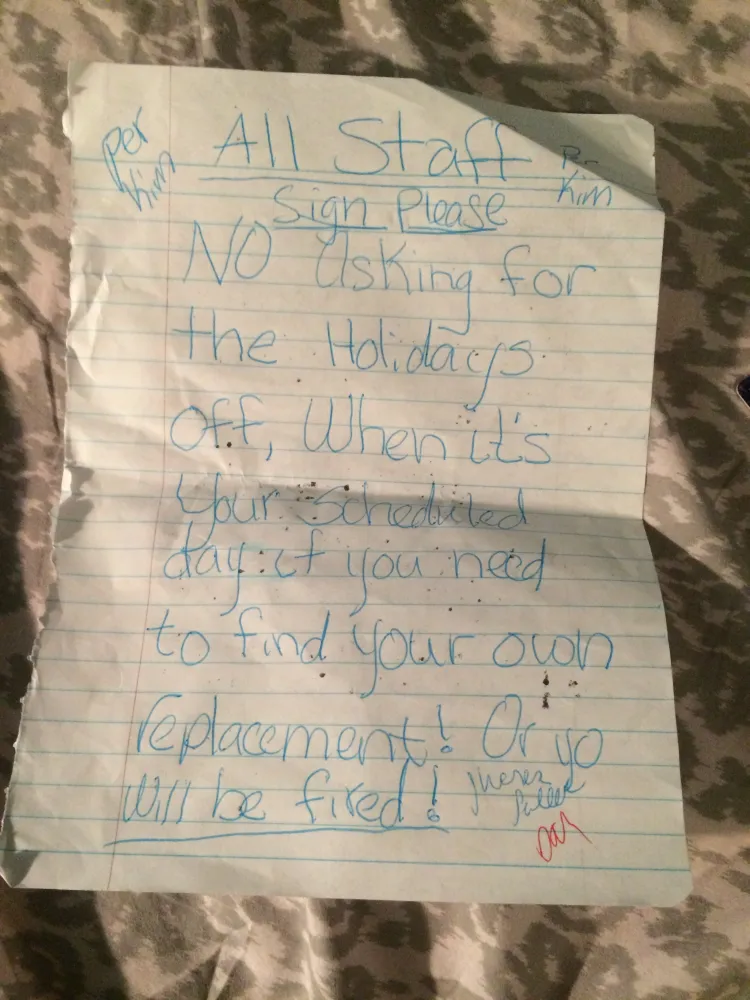 per Kim
All Staff
P- Kim
Sign Please
NO asking for
the Holidays
off, When it's
your Scheduled
day if you need
to find your own
replacement! Or yo
will be fired!